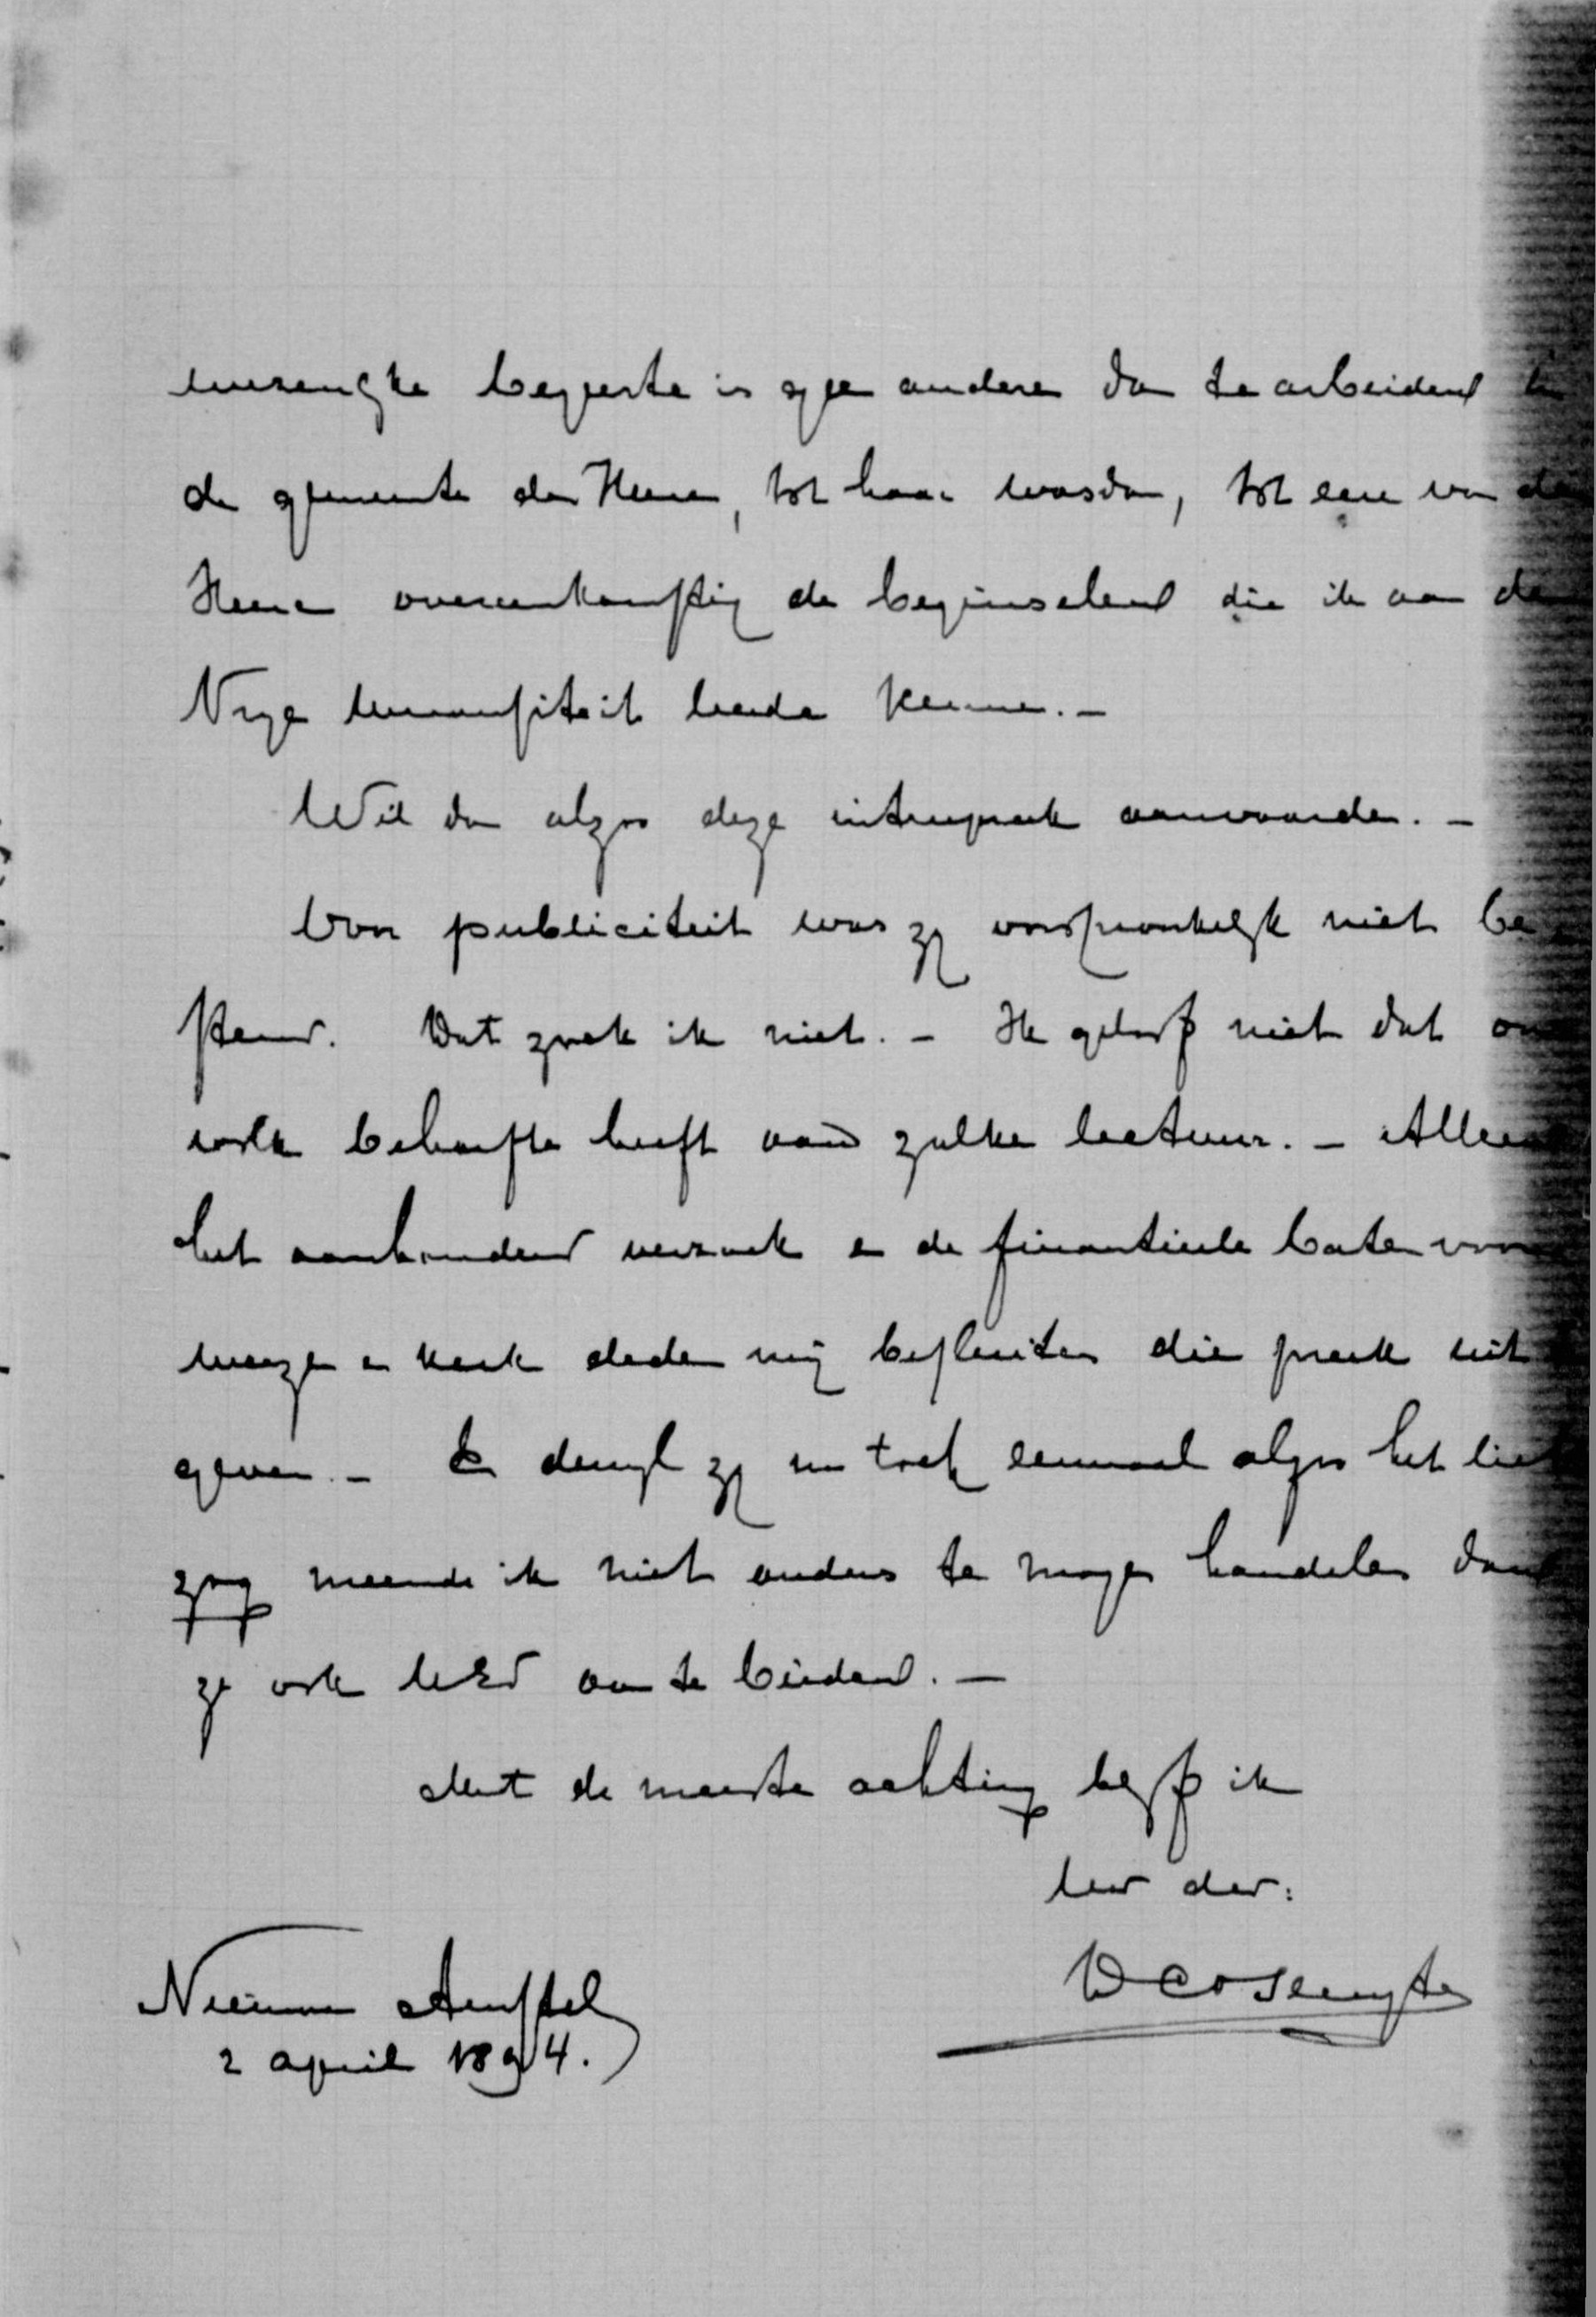 begeerte is geen andere dan te arbeiden in
de gemeente des Heeren, tot haar wasdom, tot eere van den
Heere overeenkomstig de beginselen die ik aan de
Vrije Universiteit leerde kennen. -
Wil dan alzoo deze intreepreek aanvaarden. -
Voor publiciteit was zij oorspronkelijk niet be
stemd. Dat zoek ik niet. - Ik geloof niet dat ons
volk behoefte heeft aan zulke lectuur. - Alleen
het aanhoudend verzoek en de financieele baten voor
kerk deden mij besluiten die preek uit
geven. - En dewijl zij nu toch eenmaal alzoo het licht
zag meende ik niet anders te mogen handelen dan
ze ook UEd aan te bieden. -
Met de meeste achting blijf ik
Uw dw:
Nieuwer Amstel
2 april 1894.